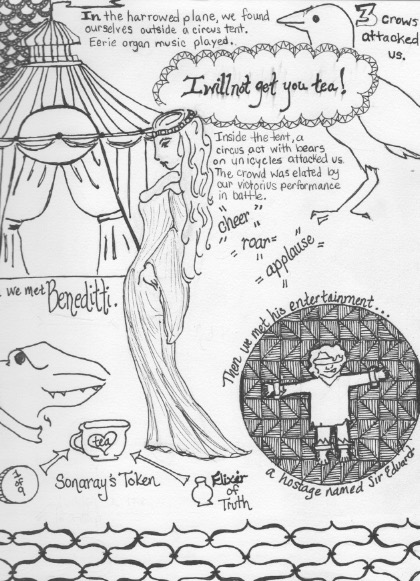 In the harrowed plane, we found
ourselves outside a circus tent.
Eerie organ music played.
3 crows
attacked
us.
I will not get you tea!
Inside the tent, a
circus act with bears
on unicycles attacked us.
The crowd was elated by
our victorius performance
in battle.
"cheer"
"roar"
"applause"
we met Beneditti.
Then we met his entertainment...
a hostage named Sir Edward
tea
1 of 9
Sonaray's Token
Elixir
of
Truth